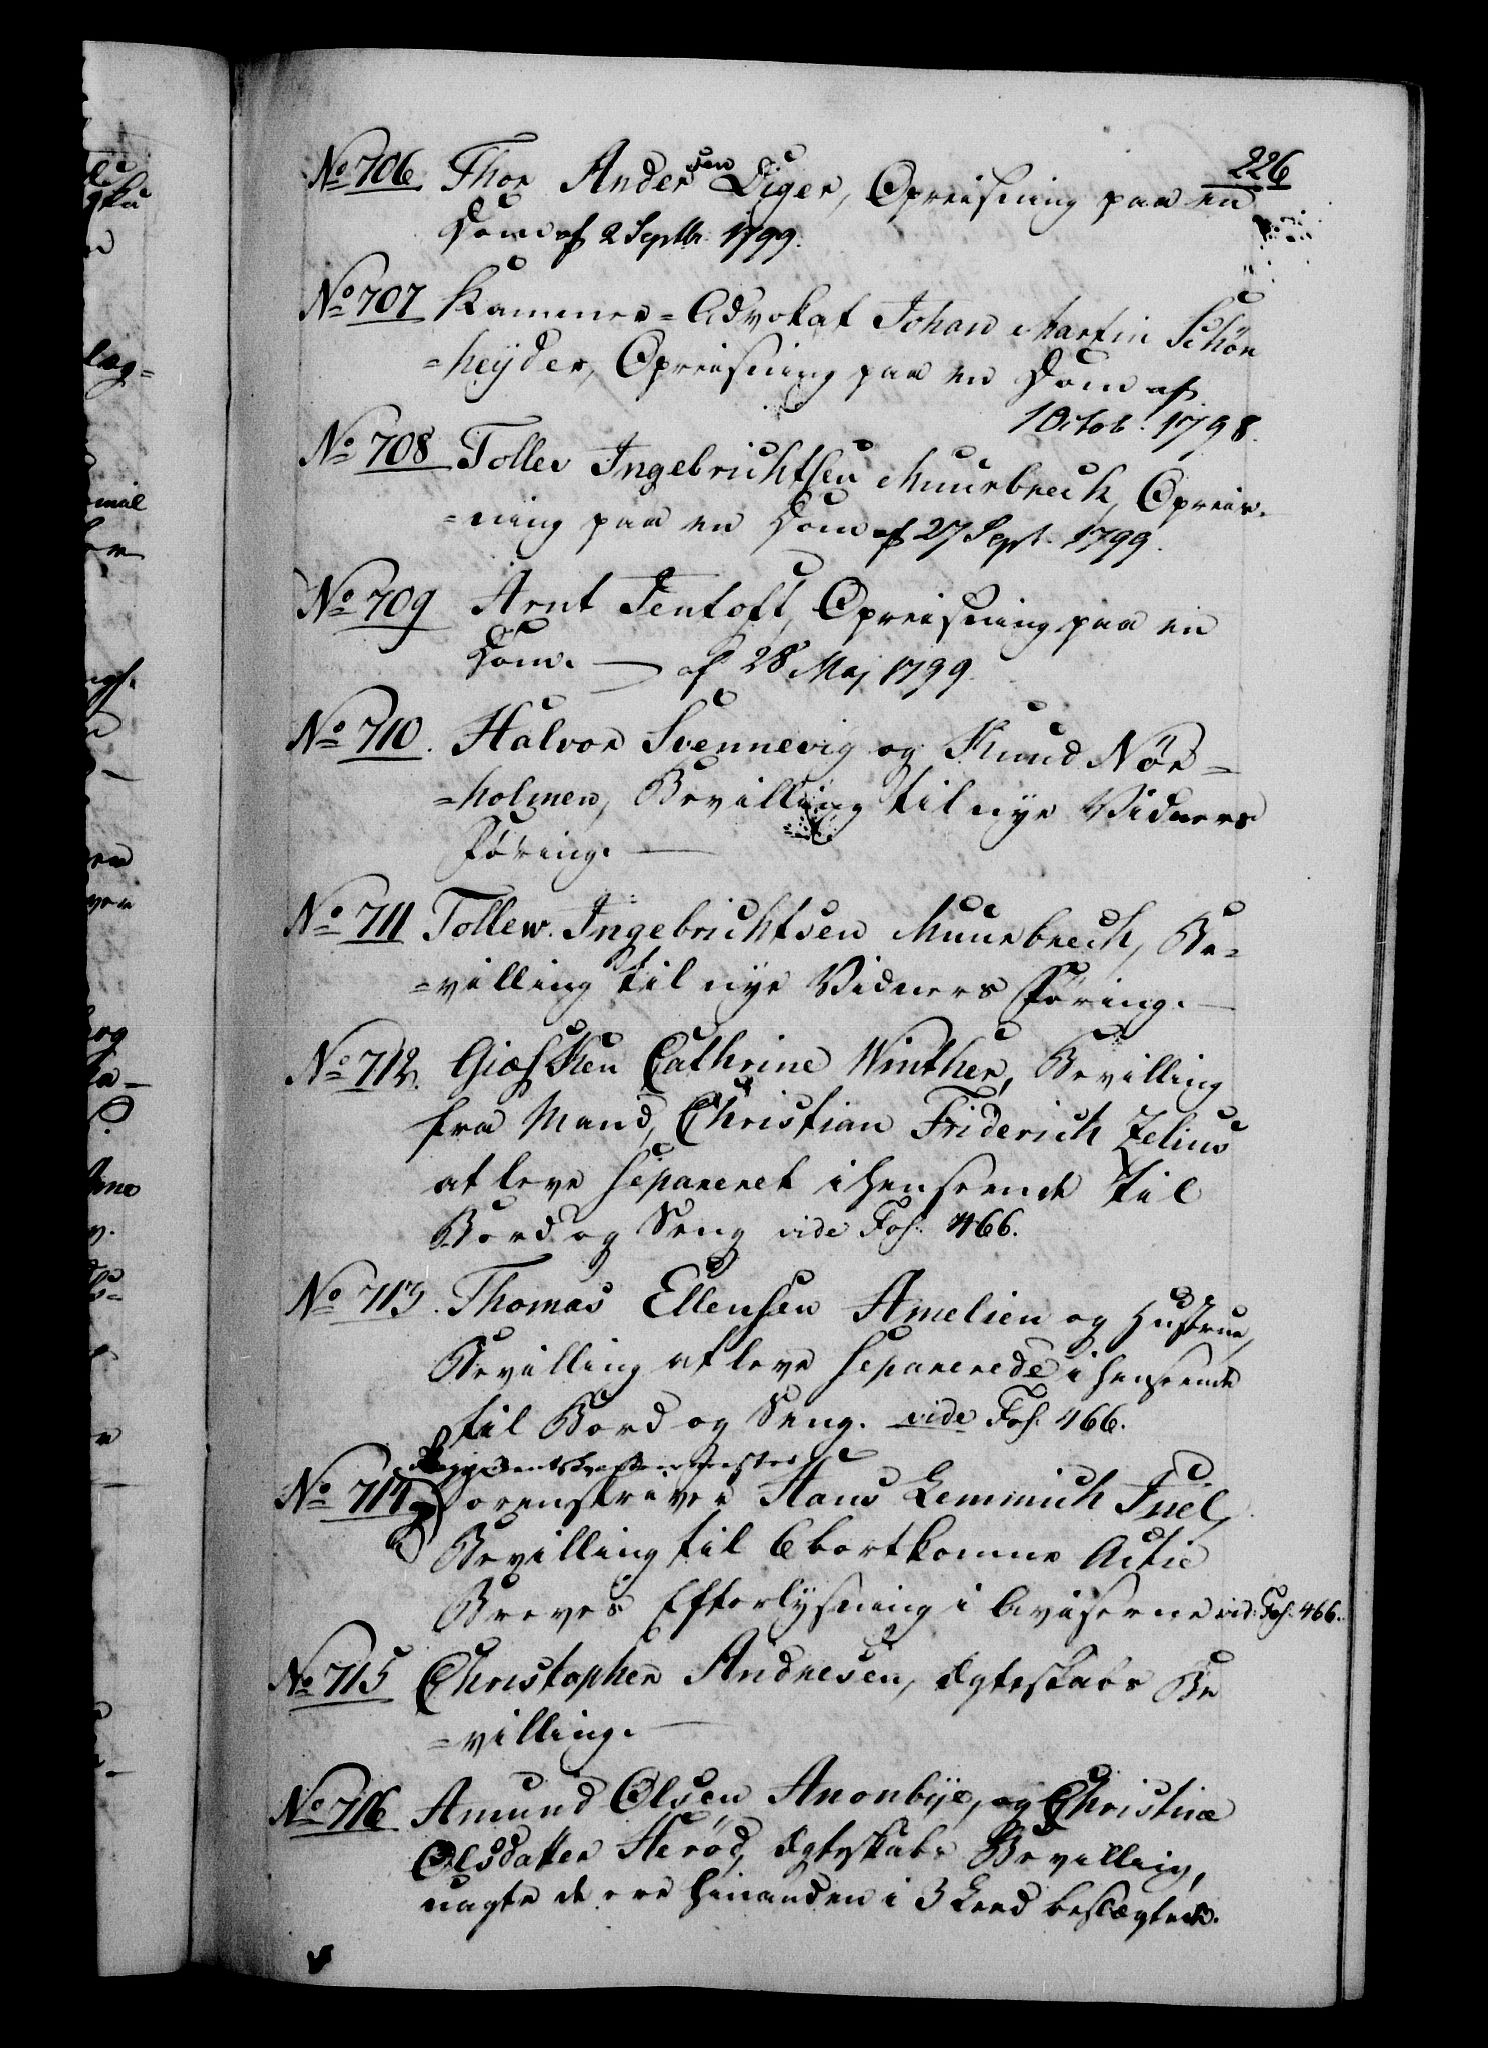 226
No 706. Thor Andersen Liger, Opreisning paa en
Dom af 2 Septbr. 1799.
No 707 Kammer=Advokat Johan Martin Schön
=heyder, Opreisning paa en Dom af
1 Octob. 1798.
No 708 Tollev Ingebrichtsen Muurbrech, Opreis.
=ning paa en Dom af 27 Sept. 1799.
No 709 Arnt Tentoft, Opreisning paa en
Dom. — af 28 Maj 1799.
No 710. Halvor Svennevig og Knud Nör=
=holmen, Bevilling til nye Vidners
Föring. —
No 711 Tollew. Ingebrichtsen Muurbrech, Be=
=villing til nye Vidners Föring. —
No 712. Giæsken Cathrine Winther, Bevilling
fra Mand, Christian Friderich Zelius
at leve separeret i henseende til
Bord og Seng vide Fol. 466.
No 713. Thomas Ellensen Amelien og Hustrue,
Bevilling at leve separerede i henseende
til Bord og Seng. vide Fol. 466.
No 714
Sorenskriver Hans Lemmich Juel,
Bevilling til 6 bortkomne Actie
Breves Efterlysning i Aviserne vid: Fol. 466.
No 715 Christopher Andresen, Ægteskabs Be
=villing. —
No 716 Amund Olsen Anonbye, og Christine
Olsdatter Heröd, Ægteskabs Bevilling,
uagte de ere hinanden i 3 Leed beslægtede.